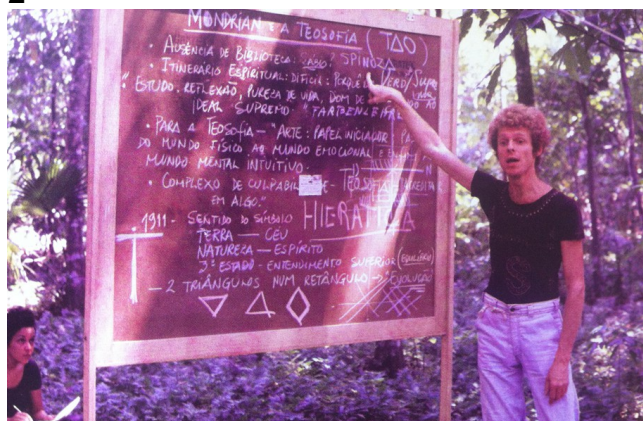 MONDRIAN E A TEOSOFIA (TAO)
• AUSÊNCIA DE BIBLIOTECA: SPINOZA
• ITINERÁRIO ESPIRITUAL: DIFÍCIL:
"ESTUDO, REFLEXÃO, PUREZA DE VIDA, DOM DE AO
IDEAL SUPREMO"
• PARA A TEOSOFIA — "ARTE: PAPEL INICIADOR:
DO MUNDO FÍSICO AO MUNDO EMOCIONAL E
MUNDO MENTAL INTUITIVO -
• COMPLEXO DE
EM ALGO."
1911 - SENTIDO DO SÍMBOLO
TERRA — CEU
NATUREZA — ESPÍRITO
3º ESTADO - ENTENDIMENTO SUPERIOR (EQUILÍBRIO)
— 2 TRIÂNGULOS NUM RETÂNGULO → EVOLUÇÃO